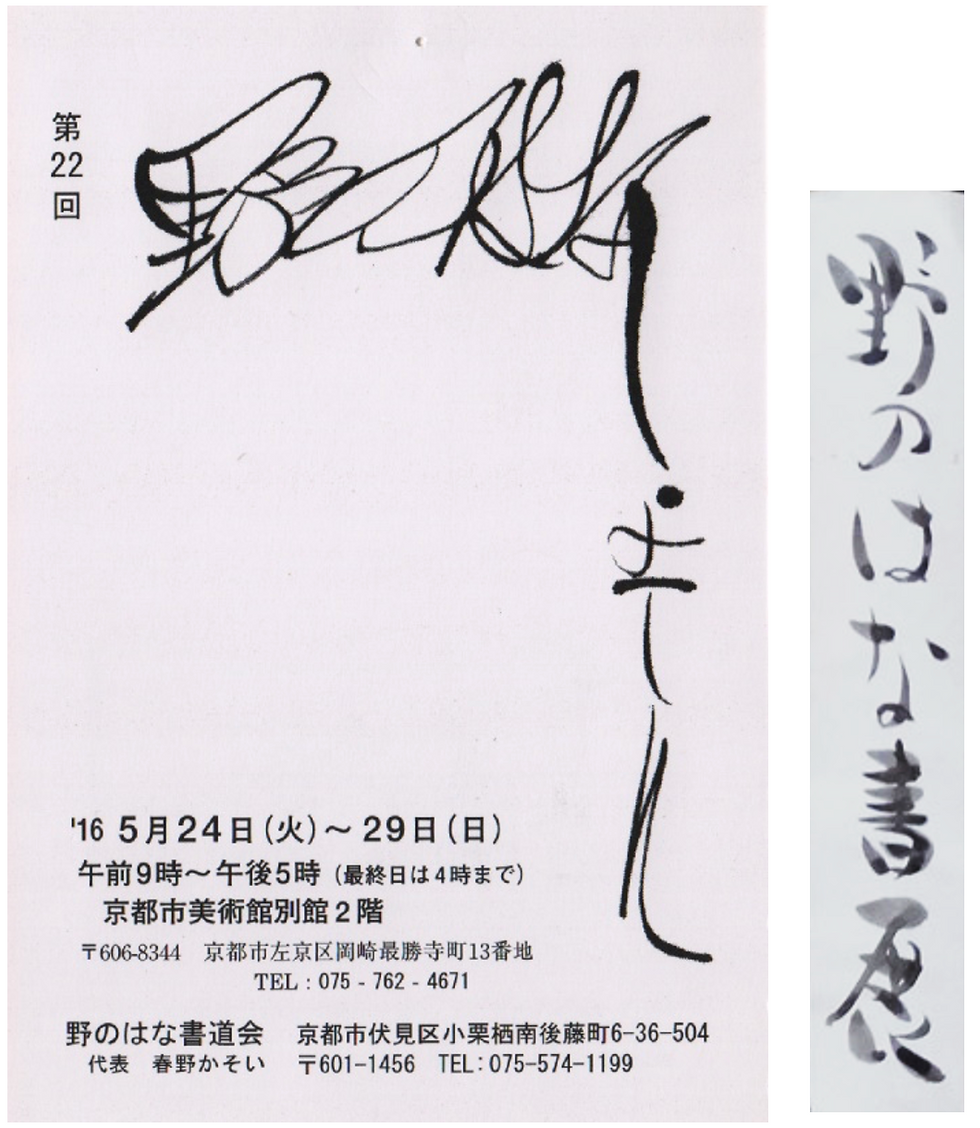 第22回
'16 5月24日(火)～29日(日)
午前9時～午後5時(最終日は4時まで)
京都市美術館別館2階
〒606-8344 京都市左京区岡崎最勝寺町13番地
TEL:075-762-4671
野のはな書道会 京都市伏見区小栗栖南後藤町6-36-504
代表 春野かそい 〒601-1456 TEL:075-574-1199
野のはな書展